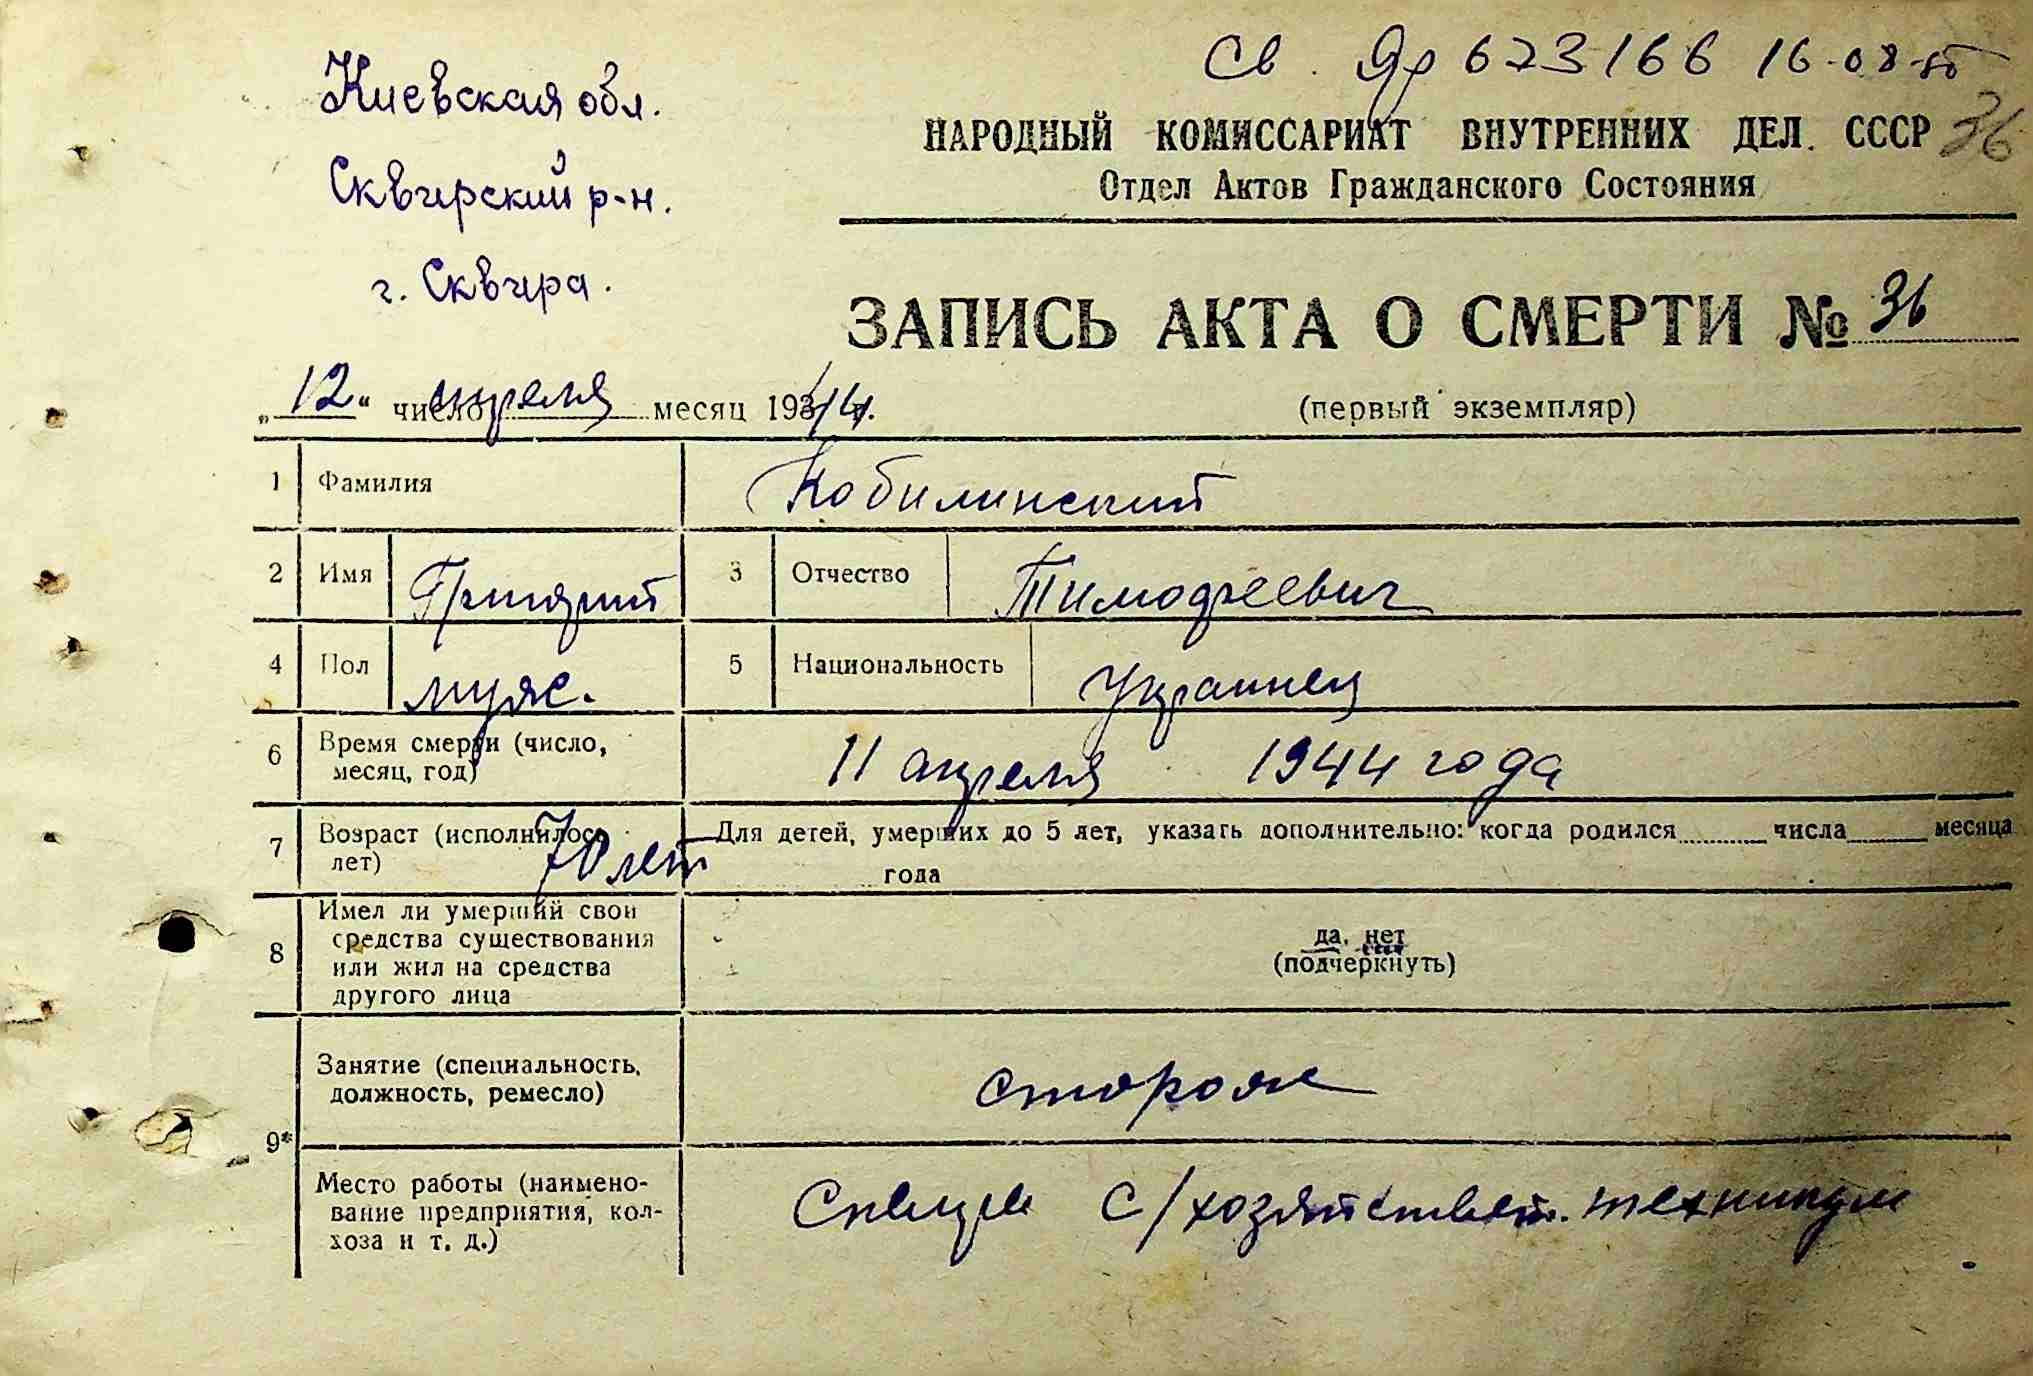 Св. Яр 623166 16-08-
36
Киевская обл.
Сквирский р-н.
г. Сквира.
НАРОДНЫЙ КОМИССАРИАТ ВНУТРЕННИХ ДЕЛ. СССР
Отдел Актов Гражданского Состояния
ЗАПИСЬ АКТА О СМЕРТИ № 36
(первый экземпляр)
„12" число апреля месяц 1944г.
1 Фамилия Кобилинский
2 Имя Григорий 3 Отчество Тимофеевич
4 Пол муж. 5 Национальность Украинец
6 Время смерти (число, месяц, год) 11 апреля 1944 года
7 Возраст (исполнилось лет) 70 лет Для детей, умерших до 5 лет, указать дополнительно: когда родился числа месяца
года
8 Имел ли умерший свои
средства существования
или жил на средства
другого лица
да, нет
(подчеркнуть)
9*
Занятие (специальность,
должность, ремесло)
сторож
Место работы (наимено-
вание предприятия, кол-
хоза и т. д.)
С/хозяйствет. техникум